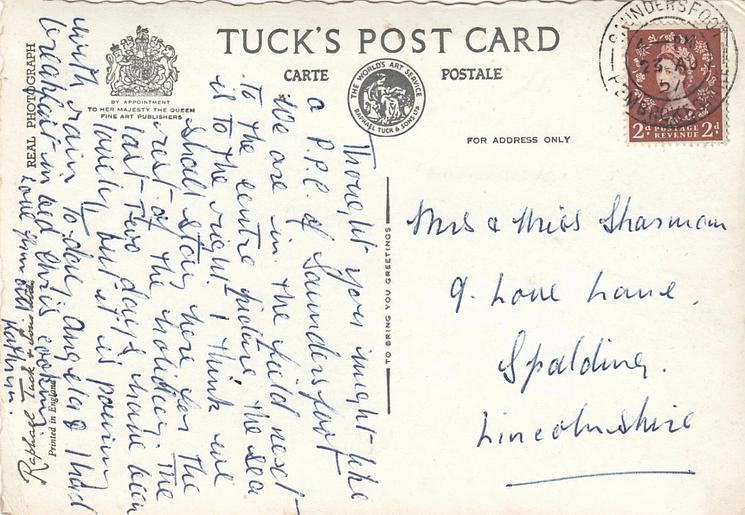 TUCK'S POST CARD
CARTE POSTALE
BY APPOINTMENT
TO HER MAJESTY THE QUEEN
FINE ART PUBLISHERS
THE WORLD'S ART SERVICE
RAPHAEL TUCK & SONS LTD
FOR ADDRESS ONLY
REAL PHOTOGRAPH
TO BRING YOU GREETINGS
Raphael Tuck & Sons Ltd
Printed in England
SAUNDERSFOOT
23 AU
2d POSTAGE REVENUE 2d
Thought you might like
a P.P.C. of Saundersfoot
We are in the field next
to the centre picture the sea
is to the right. I think we
shall stay here for the
rest of the holiday. The
last two days have been
lovely but it is pouring
with rain to day, Angela & I had
breakfast in bed Chris cooking
Love from
Kathryn.
Mrs & Miss Sharman
9. Love Lane.
Spalding.
Lincolnshire